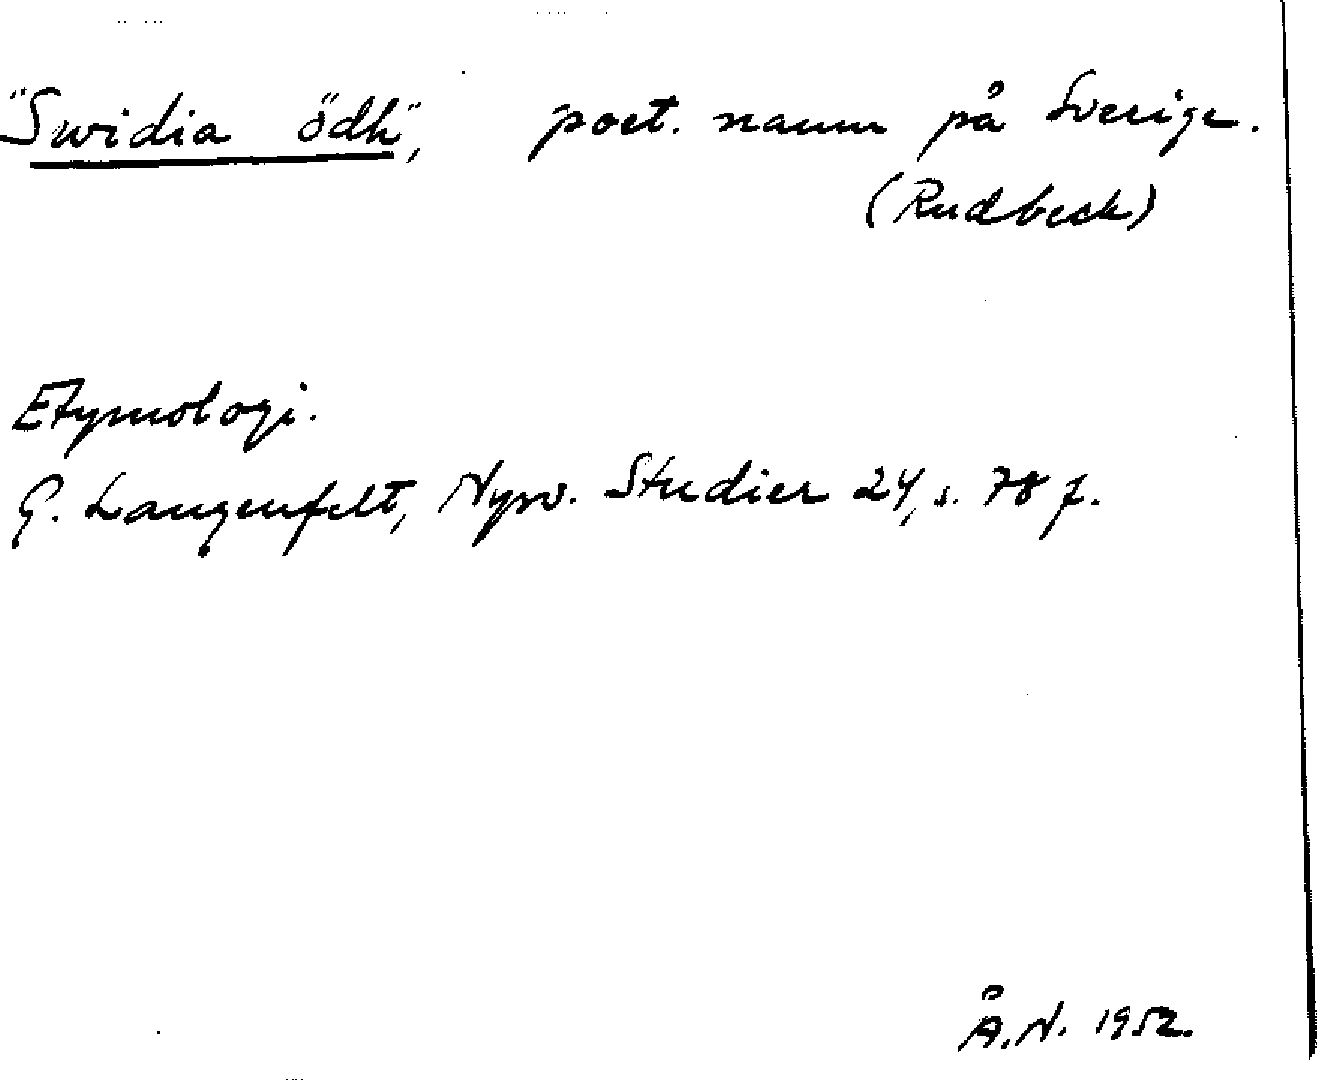 "Swidia ödh", poet. namn på Sverige.
(Rudbeck)
Etymologi.
G. Langenfelt, Nysv. Studier 24, s. 78 f.
Å.N. 1952.